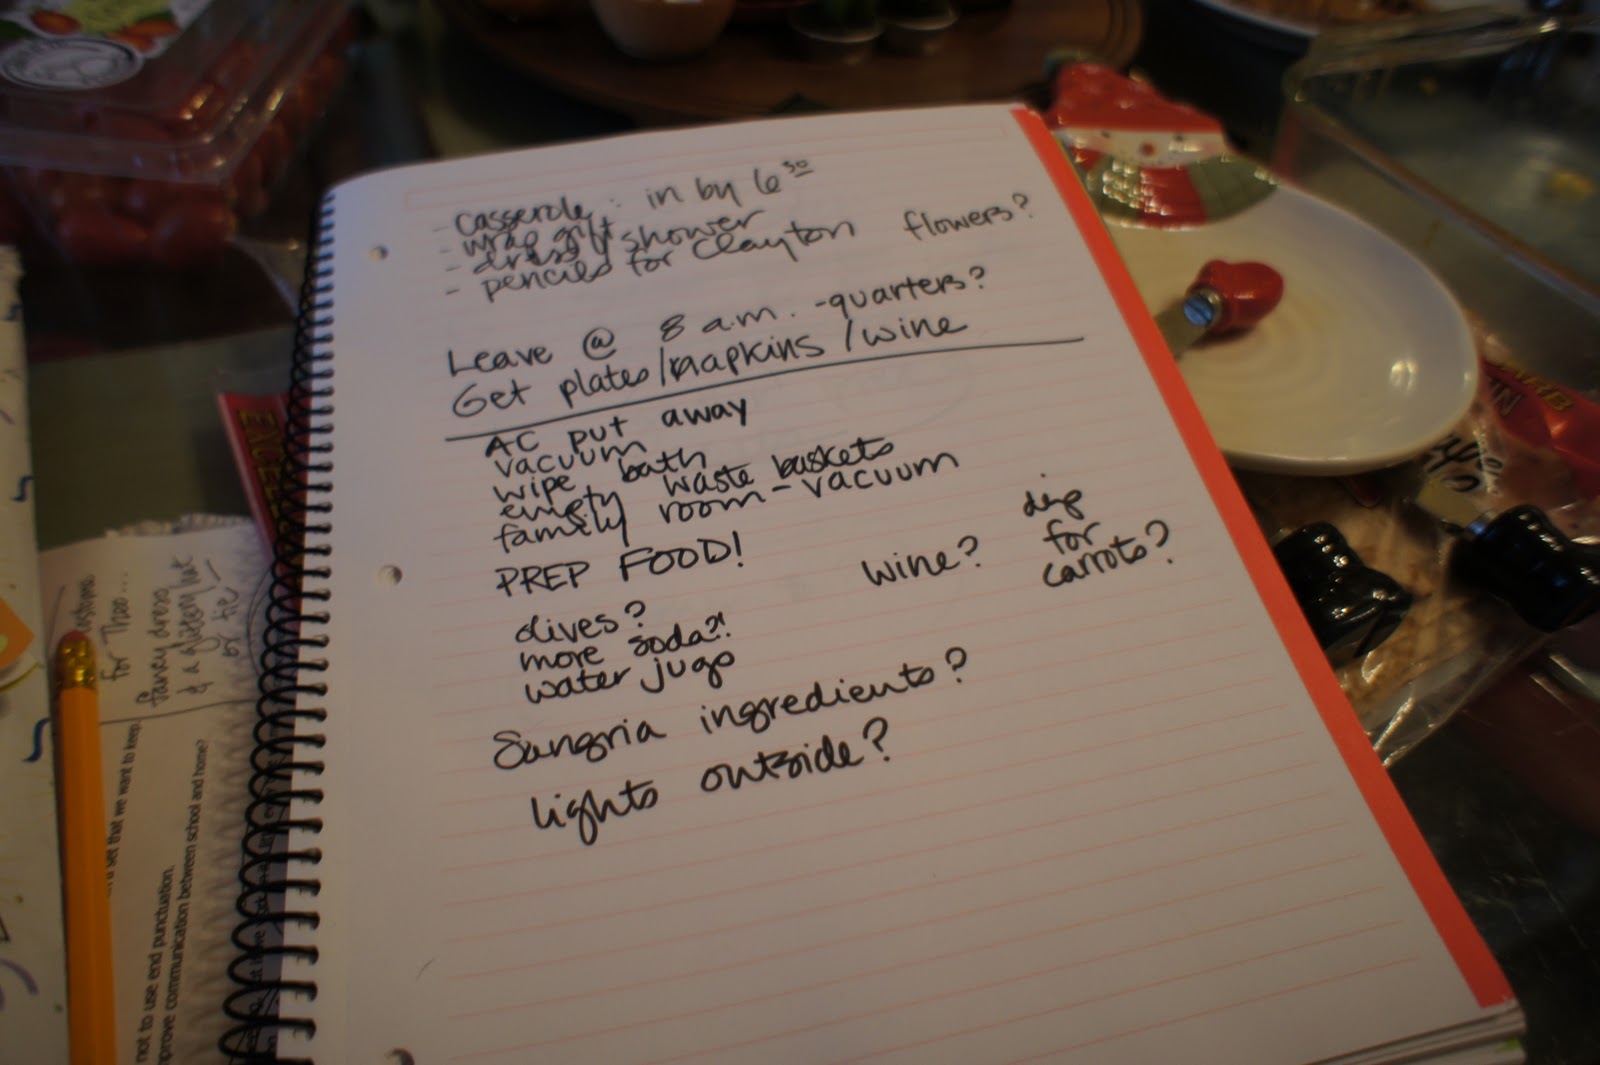 - casserole: in by 6³⁰
- wrap gift
- dress/shower
- pencils for Clayton flowers?
Leave @ 8 a.m. - quarters?
Get plates/napkins/wine
AC put away
vacuum
wipe bath
empty waste baskets
family room - vacuum
PREP FOOD!
wine?
dip
for
carrots?
olives?
more soda?!
water jugs
Sangria ingredients?
lights outside?
for Theo...
Fancy dress
& a glittery hat
or tie
a set that we want to keep
not to use end punctuation.
improve communication between school and home?
EXCELL